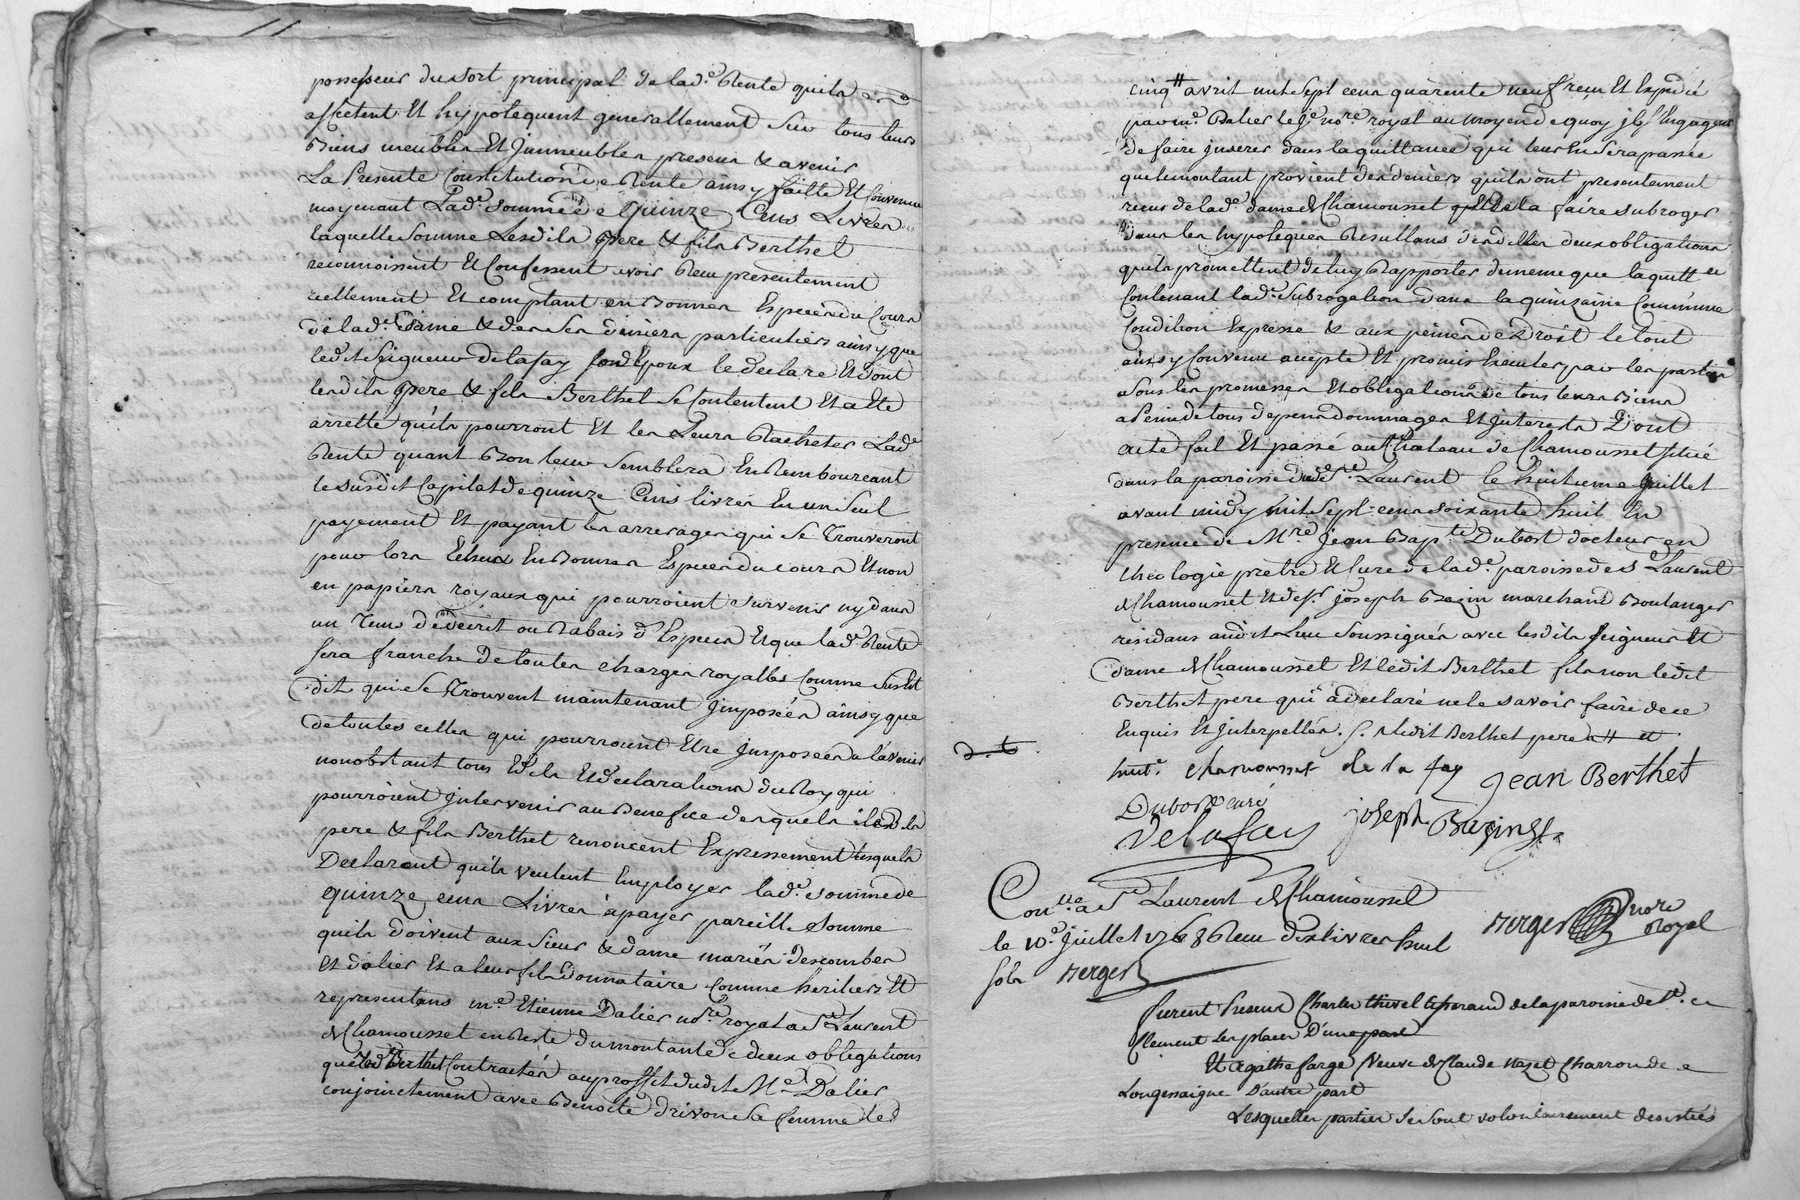 possesseur du sort principal de lad.e Rente quils
affectent Et hypotequent generallement sur tous leurs
Biens meubles Et Jmmeubles presens & avenir
La Presente Constitution de Rente ainsy faitte Et Convenue
moyenant Lad.e Somme de Quinze Cens Livres
laquelle Somme Lesdits Pere & fils Berthet
reconnoissent Et Confessent avoir Receu presentement
reellement Et comptant en Bonnes Especes du Cours
de lad.e Dame & de ses deniers particuliers ainsy que
ledit Seigneur Delafay son Epoux le declare Et dont
lesdits Pere & fils Berthet se Contentent Et a Ete
arrette quils pourront Et les Leurs Racheter Lad.e
Rente quant Bon leur Semblera En Rembourcant
le susdit Capital de quinze Cens livres En un Seul
payement Et payant les arrerages qui se Trouveront
pour lors Echeux En Bonnes Especes du cours Et non
en papiers royaux qui pourroient survenir ny dans
un Tems de decrit ou Rabais d'Especes Et que lad.e Rente
sera franche De toutes charges royalles Comme sus Est
Dit qui se Trouvent maintenant Jmposées ainsy que
de toutes celles qui pourroient Etre Jmposées a l'avenir
nonobstant tous Edits Et declarations du Roy qui
pourroient Jntervenir au Benefice desquels lesdits
pere & fils Berthet renoncent Expressement lesquels
Declarent quils veulent Employer lad.e somme de
quinze cens Livres a payer pareille Somme
quils doivent aux Sieur & dame mariés Descombes
Et dalier Et a leur fils Donnataire Comme heritiers Et
representans m.e Etienne Dalier no.re royal a S.t Laurent
de Chamousset en Reste du montant de deux obligations
que led. Berthet Contractés au proffit dudit M.e Dalier
conjointement avec Benoite Drivon sa femme le
cinq avril mil sept cens quarente neuf receu Et Expedié
par m.e Dalier led.t no.re royal au moyen de quoy ils s'Engagent
De faire jnserer dans la quittance qui leur En sera passée
que le montant provient des deniers quils ont presentement
receus de lad.e dame de Chamousset Et De la faire subroger
Dans les hypoteques Resultans desdittes deux obligations
quils promettent de luy Rapporter de meme que la quitt.ce
Contenant lad.e Subrogation dans la quinzaine Comme une
Condition Expresse & aux peines de Droit le tout
ainsy Convenu accepté Et promis Executer par les parties
sous les promesses Et obligations de tous leurs Biens
a Peine de tous depens dommages Et Jnterests Dont
acte fait Et passé au Chateau de Chamousset situé
dans la paroisse dud. S.t Laurent le huitieme Juillet
avant midy mil sept cens soixante huit En
presence de M.re Jean Bap.te Dubost docteur en
theologie pretre Et Curé de lad.e paroisse de S.t Laurent
de Chamousset Et de s.r Joseph Bazin marchand Boulanger
residans audit Lieu Soussignés avec lesdits Seigneur Et
Dame de Chamousset Et ledit Berthet fils non ledit
Berthet pere qui a declaré ne le savoir faire de ce
Enquis Et Jnterpellés. /. ledit Berthet pere
chamousset de la fay Jean Berthet
Dubost curé
Delafay joseph Bazin
Con.lle a S.t Laurent de Chamousset
le 10.e Juillet 1768 Receu dix livres huit
sols Verger
Verger no.re Royal
furent Presens Charles thivel tisserand de la paroisse de S.t
Clement les places D'une part
Et agathe farge Veuve de Claude Nazet Charron de
Longessaigne D'autre part
Lesquelles parties se sont volontairement desistés